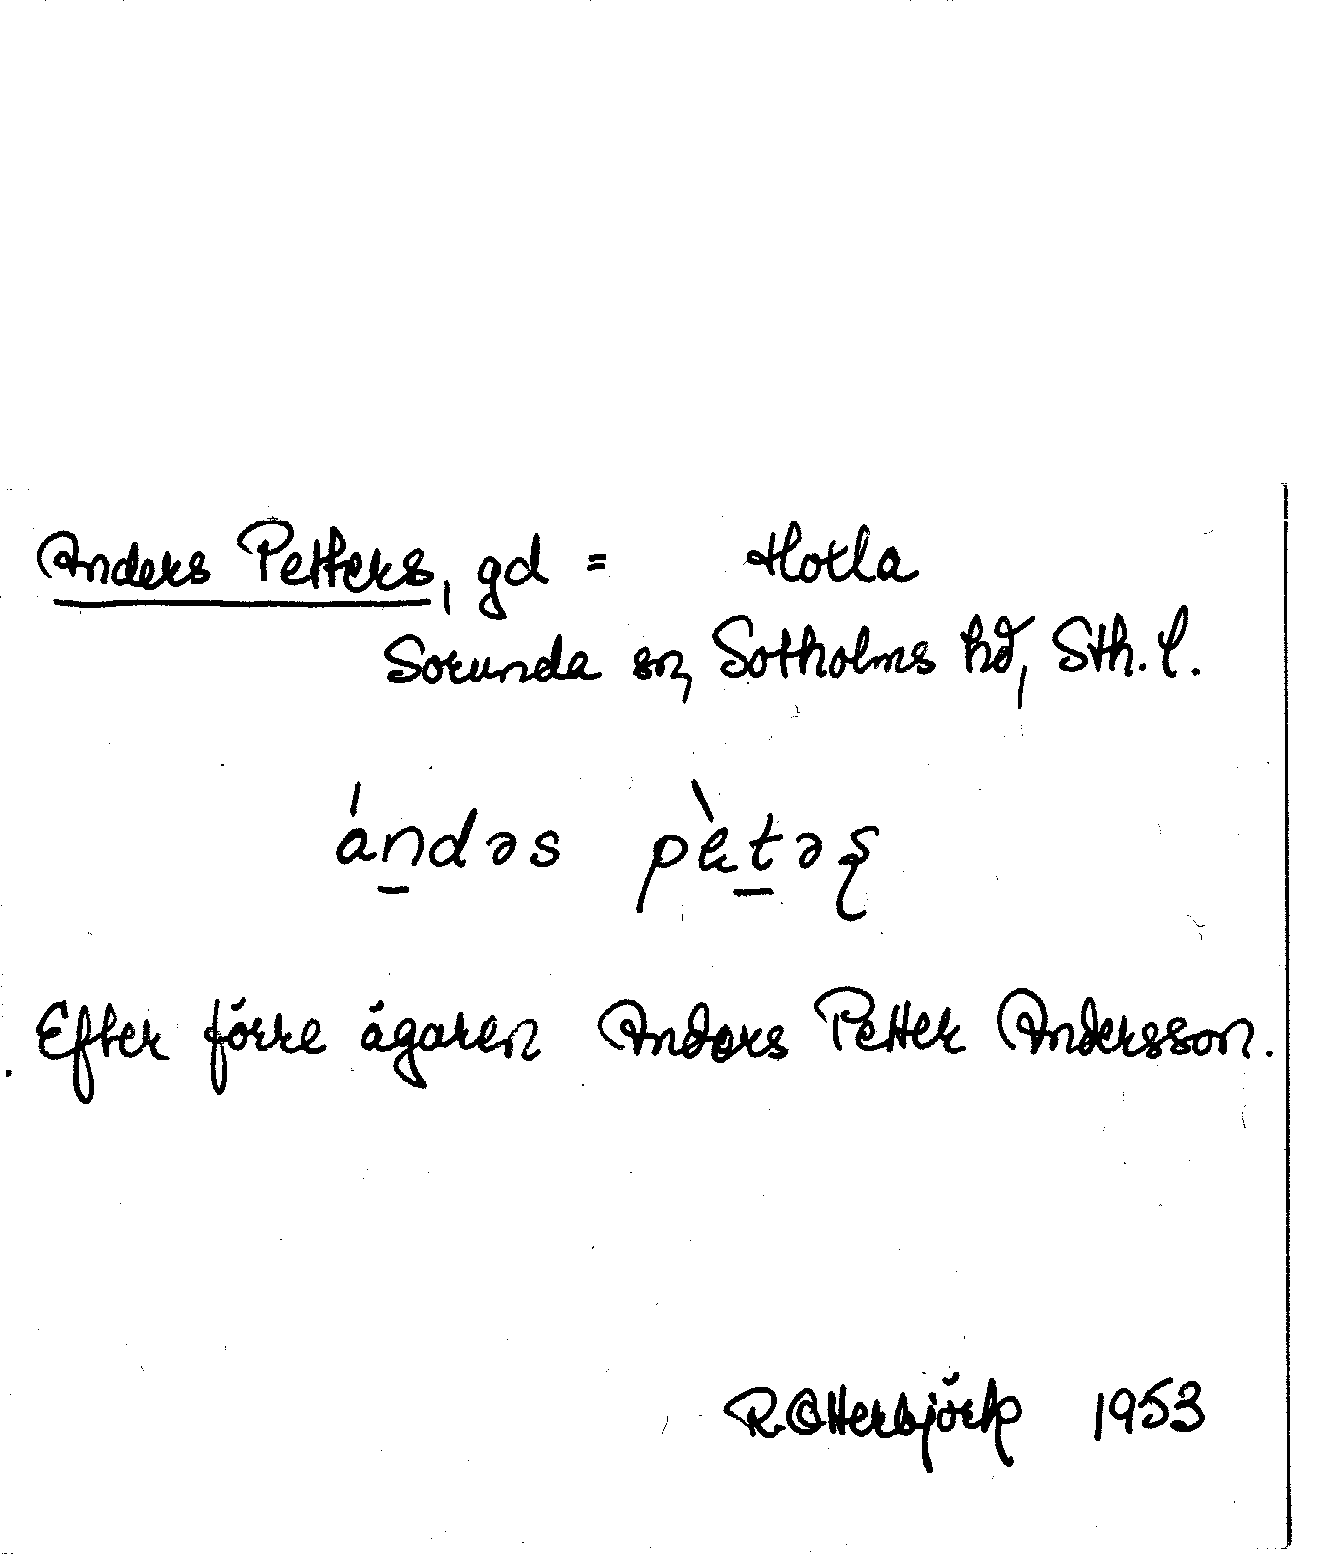 Anders Petters, gd = Hotla
Sorunda sn, Sotholms hd, Sth. l.
ándəs pètəʂ
Efter förre ägaren Anders Petter Andersson.
R. Otterbjörk 1953